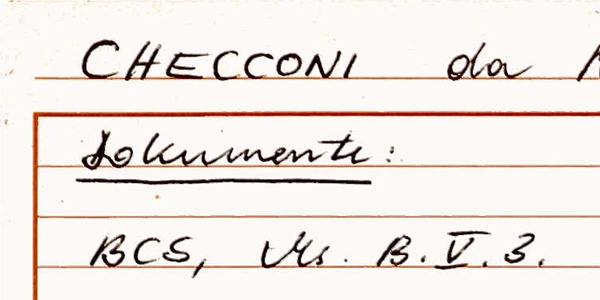 CHECCONI da
Dokumente:
BCS, Ms. B.V.3.